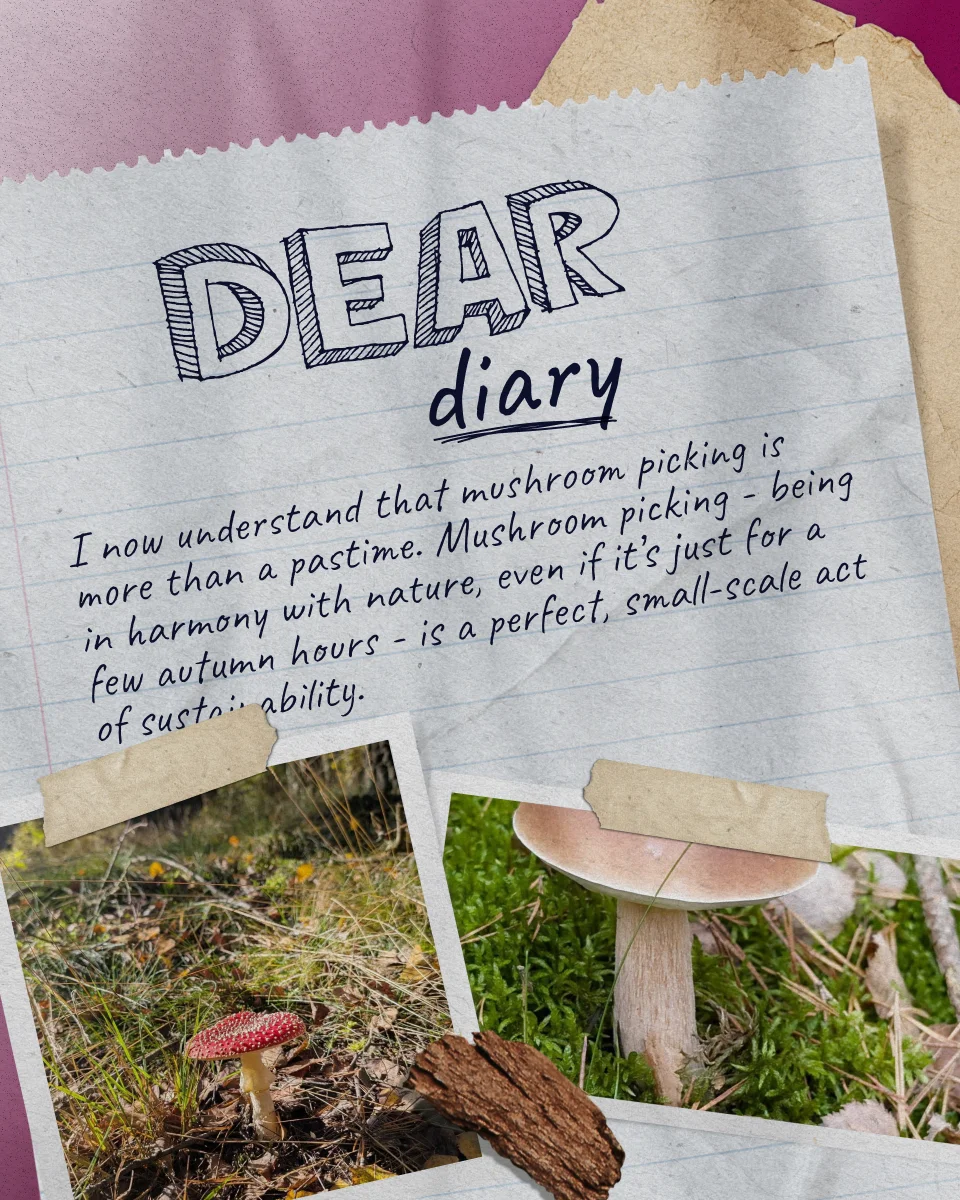 DEAR
diary
I now understand that mushroom picking is
more than a pastime. Mushroom picking - being
in harmony with nature, even if it's just for a
few autumn hours - is a perfect, small-scale act
of sustainability.